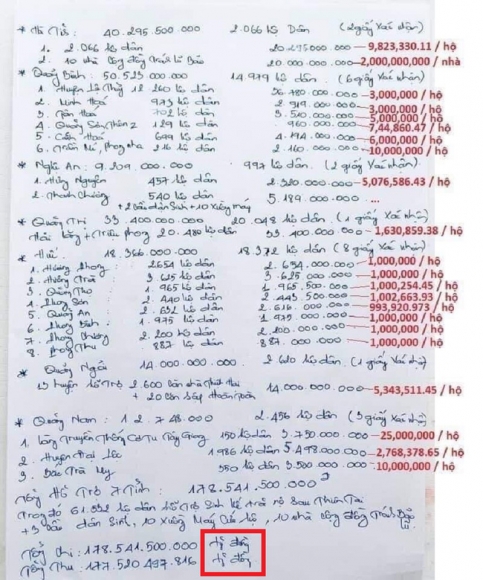 * Hà Tĩnh: 40.295.500.000 2.066 hộ Dân (2 giấy xác nhận)
1. 2.066 hộ dân 20.295.000.000 9,823,330.11 / hộ
2. 10 nhà cộng đồng tránh lũ Bão 20.000.000.000 2,000,000,000 / nhà
* Quảng Bình: 50.523.000.000 14.979 hộ dân (6 giấy xác nhận)
1. Huyện Lệ Thủy 12.260 hộ dân 36.780.000.000 3,000,000 / hộ
2. Minh Hoá 973 hộ dân 2.919.000.000 3,000,000 / hộ
3. Tân Hoá 702 hộ dân 3.510.000.000 5,000,000 / hộ
4. Quảng Sơn 129 hộ dân 7,44,860.47 / hộ
5. Cảnh Hoá 699 hộ dân 4.194.000.000 6,000,000 / hộ
6. 216 hộ dân 2.160.000.000 10,000,000 / hộ
* Nghệ An: 9.209.000.000 997 hộ dân. (2 giấy xác nhận)
1. Hưng Nguyên 457 hộ dân 2.320.000.000 5,076,586.43 / hộ
2. Thanh Chương 540 hộ dân 5.189.000.000 ...
+ 10 xuồng máy
* Quảng Trị 33.400.000.000 20.048 hộ dân (1 giấy xác nhận)
Hải Lăng + Triệu Phong 20.480 hộ dân 33.400.000.000 1,630,859.38 / hộ
* Huế: 18.366.000.000 18.372 hộ dân (8 giấy xác nhận)
1. 2654 hộ dân 2.654.000.000 1,000,000 / hộ
2. Hương Trà 3.625 hộ dân 3.625.000.000 1,000,000 / hộ
3. Quảng Thọ 1.965 hộ dân 1.965.500.000 1,000,254.45 / hộ
4. 2.440 hộ dân 2.445.500.000 1,002,663.93 / hộ
5. Quảng An 2.632 hộ dân 2.616.000.000 993,920.973 / hộ
6. 1.975 hộ dân 1.975.000.000 1,000,000 / hộ
7. 2.200 hộ dân 2.200.000.000 1,000,000 / hộ
8. 887 hộ dân 887.000.000 1,000,000 / hộ
* Quảng Ngãi 14.000.000.000 2.620 hộ dân (1 giấy xác nhận)
13 huyện hỗ trợ 2.600 14.000.000.000 5,343,511.45 / hộ
+ 20 căn sập hoàn toàn
* Quảng Nam: 12.748.000 2.456 hộ dân (3 giấy xác nhận)
1. Làng truyền thống Cơ Tu Tây Giang 150 hộ dân 3.750.000.000 25,000,000 / hộ
2. Huyện Đại Lộc 1986 hộ dân 5.498.000.000 2,768,378.65 / hộ
3. Bắc Trà My 350 hộ dân 3.500.000.000 10,000,000 / hộ
Tổng Hỗ Trợ 7 Tỉnh: 178.541.500.000
Trong đó 61.538 hộ dân hỗ trợ sinh kế sau Thiên Tai
dân sinh, 10 xuồng máy cứu hộ, 10 nhà cộng đồng tránh Bão lũ
Tổng Chi: 178.541.500.000 tỷ đồng
Tổng Thu: 177.520.497.816 tỷ đồng